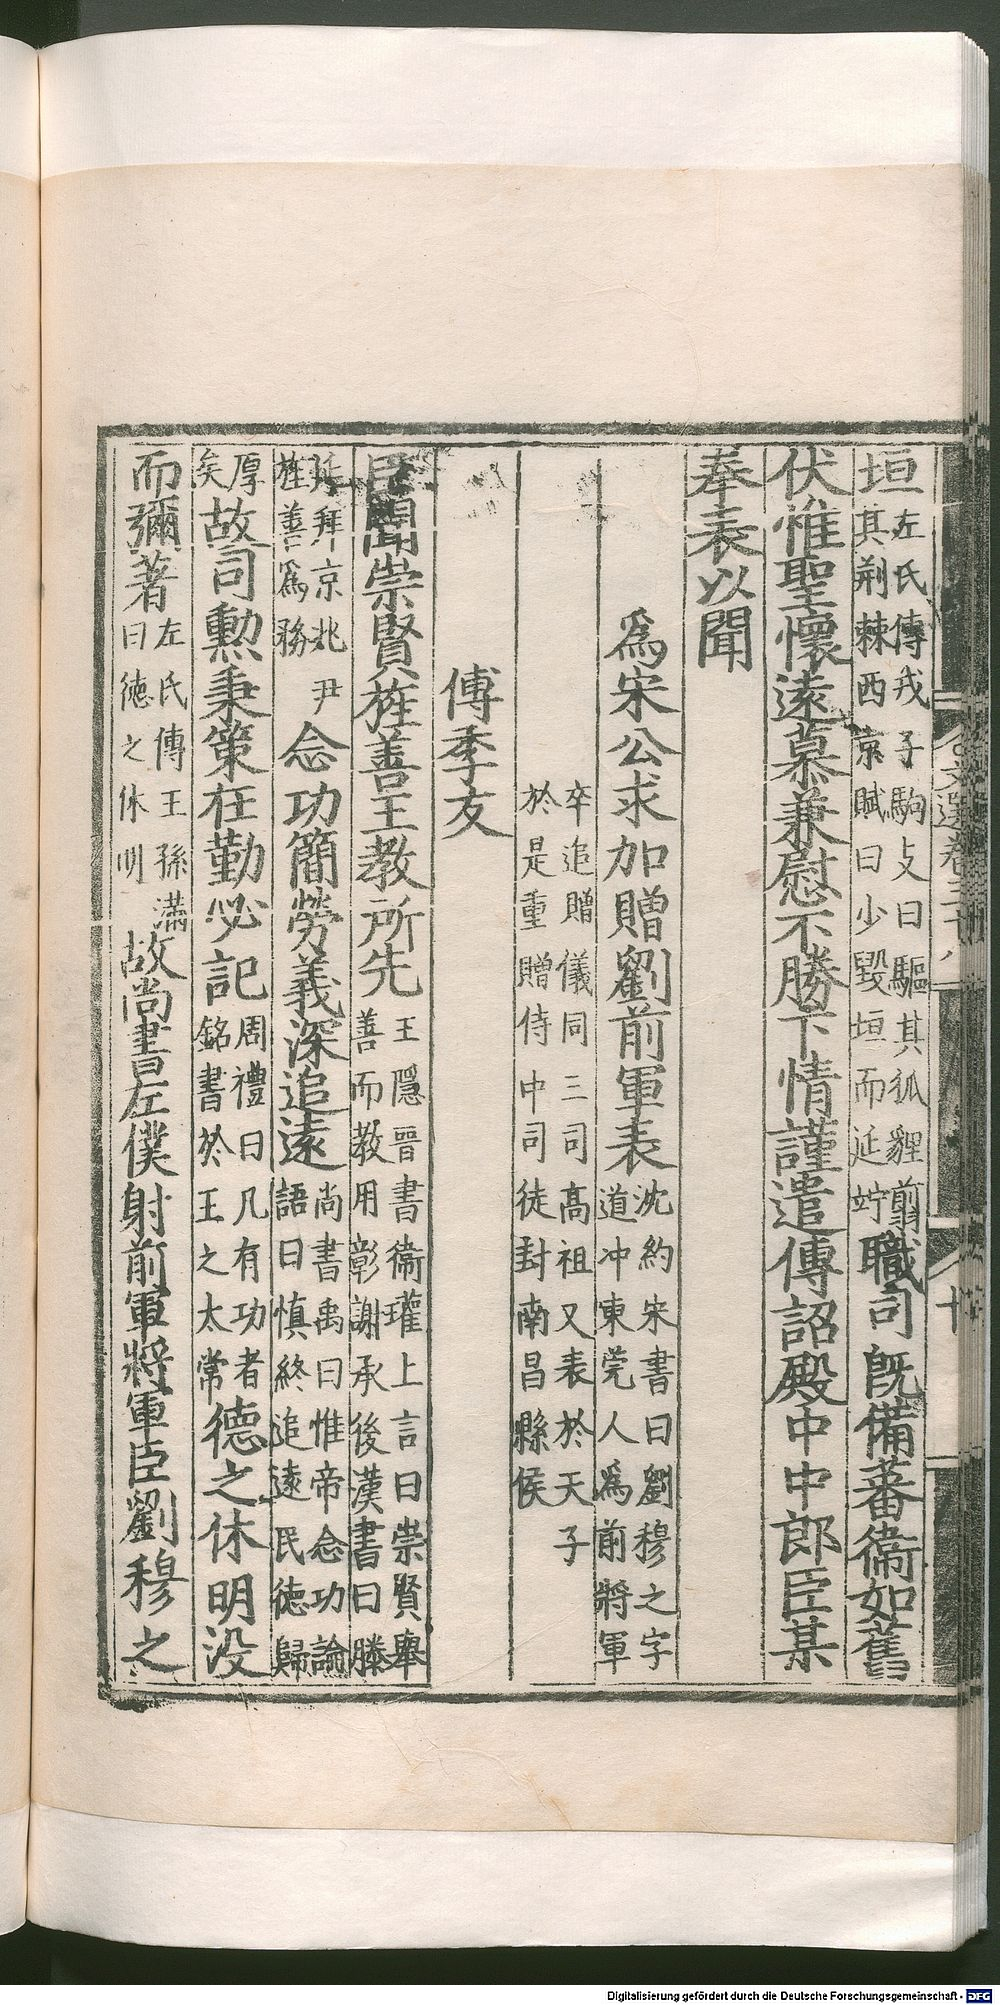 文選卷三十八
十
垣左氏傳戎子駒支曰驅其狐貍翦其荆棘西京賦曰少毀垣而延竚職司旣備蕃衞如舊
伏惟聖懷遠慕兼慰不勝下情謹遣傳詔殿中中郎臣某
奉表以聞
爲宋公求加贈劉前軍表沈約宋書曰劉穆之字道冲東莞人爲前將軍
卒追贈儀同三司高祖又表於天子於是重贈侍中司徒封南昌縣侯
傅季友
臣聞崇賢旌善王教所先王隱晉書衞瓘上言曰崇賢舉善而教用彰謝承後漢書曰滕
延拜京兆尹旌善爲務念功簡勞義深追遠尚書禹曰惟帝念功論語曰慎終追遠民德歸
厚矣故司勲秉策在勤必記周禮曰凡有功者銘書於王之太常德之休明没
而彌著左氏傳王孫滿曰德之休明故尚書左僕射前軍將軍臣劉穆之
Digitalisierung gefördert durch die Deutsche Forschungsgemeinschaft - DFG